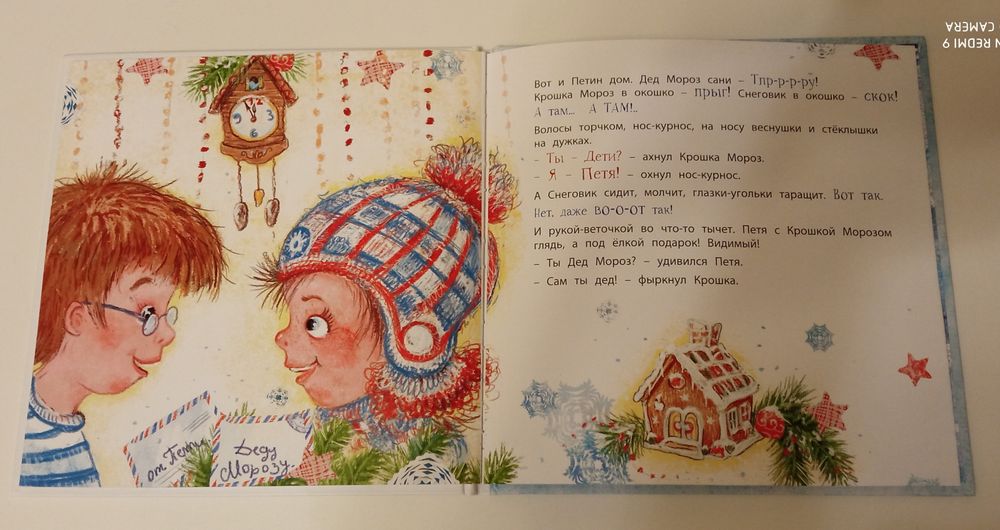 от Пети
Деду
Морозу
Вот и Петин дом. Дед Мороз сани – Тпр-р-р-ру!
Крошка Мороз в окошко – прыг! Снеговик в окошко – скок!
А там... А ТАМ!..
Волосы торчком, нос-курнос, на носу веснушки и стёклышки
на дужках.
– Ты – Дети? – ахнул Крошка Мороз.
– Я – Петя! – охнул нос-курнос.
А Снеговик сидит, молчит, глазки-угольки таращит. Вот так.
Нет, даже во-о-от так!
И рукой-веточкой во что-то тычет. Петя с Крошкой Морозом
глядь, а под ёлкой подарок! Видимый!
– Ты Дед Мороз? – удивился Петя.
– Сам ты дед! – фыркнул Крошка.
N REDMI 9
CAMERA